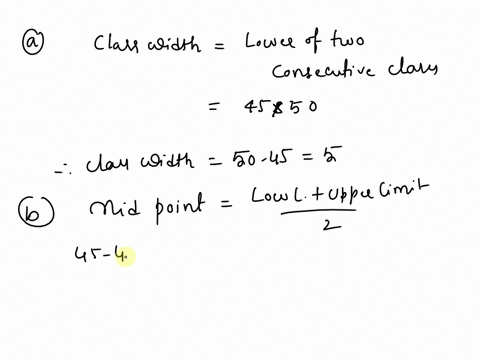 (a) Class width = Lower of two
Consecutive class
= 45 & 50
∴ Class width = 50-45 = 5
(b) Mid point = Low L. + Upper limit / 2
45-4